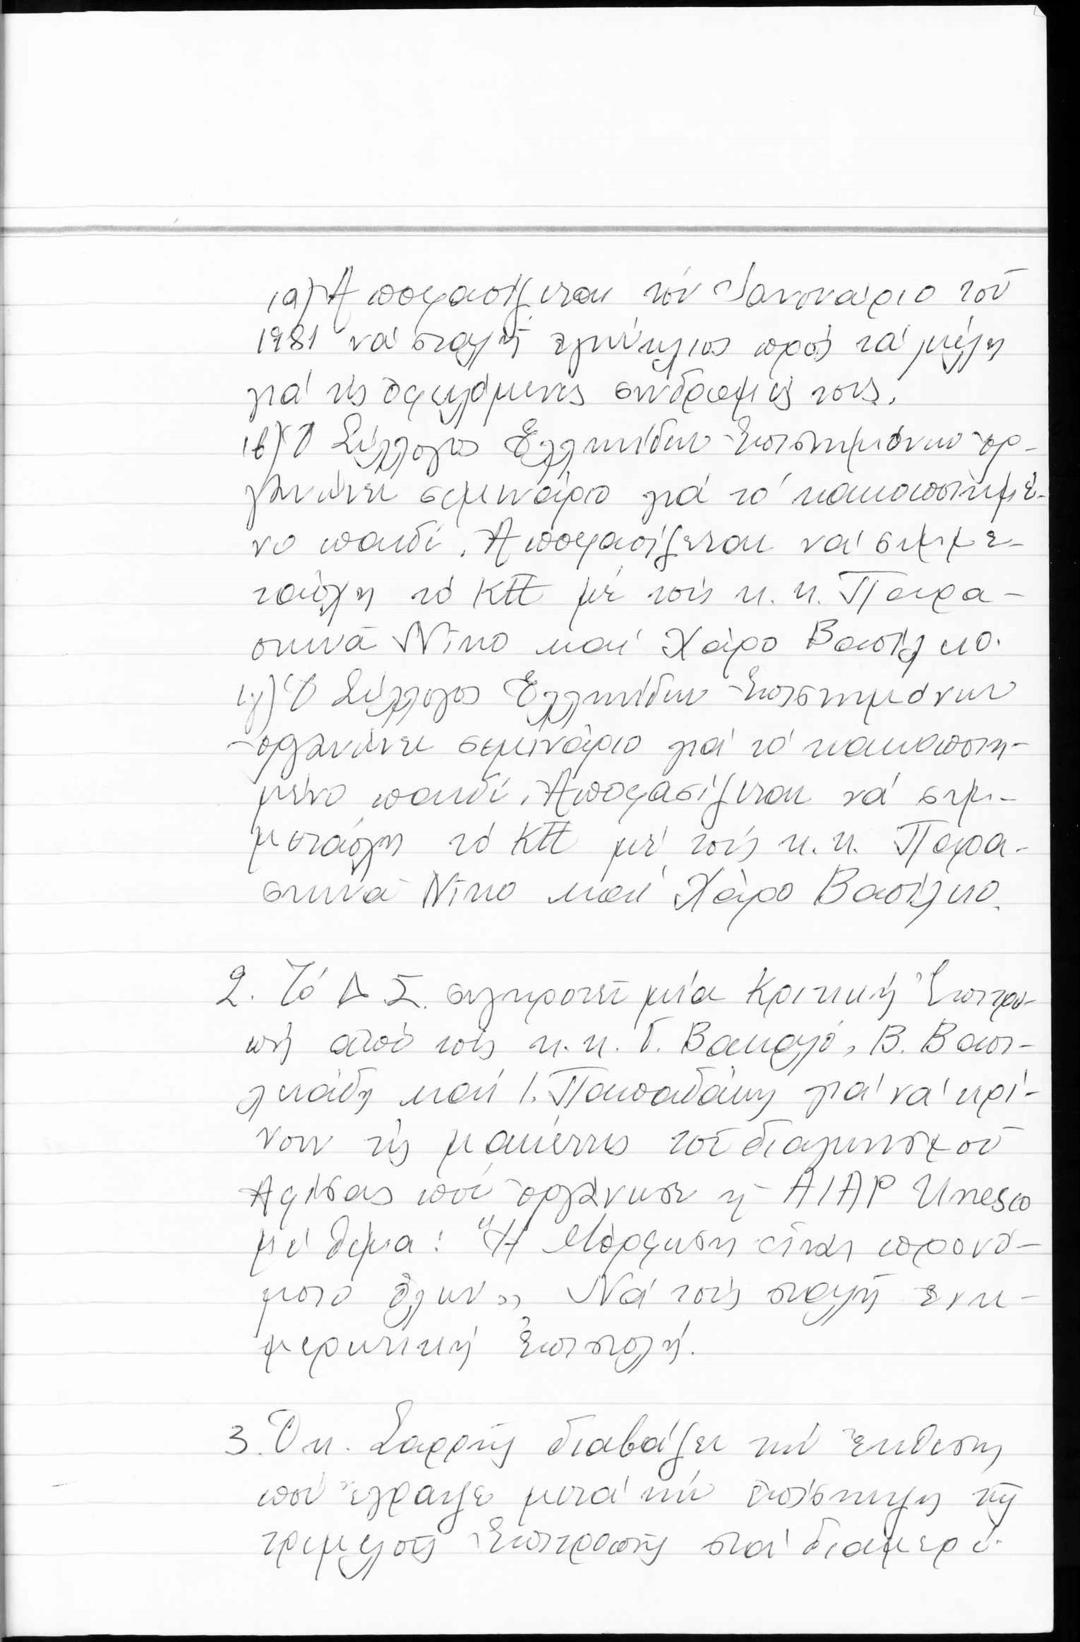 1α) Ἀποφασίζεται τόν Ἰανουάριο τοῦ
1981 νά σταλῆ ἐγκύκλιος πρός τά μέλη
γιά τίς ὀφειλόμενες συνδρομές τους.
1β) Ὁ Σύλλογος Ἑλληνίδων Ἐπιστημόνων ὀρ-
γανώνει σεμινάριο γιά τό κακοποιημέ-
νο παιδί. Ἀποφασίζεται νά συμμε-
τάσχη τό ΚΠ μέ τούς κ.κ. Παρα-
σκευᾶ Νῖκο καί Χάρο Βασίλειο.
1γ) Ὁ Σύλλογος Ἑλληνίδων Ἐπιστημόνων
ὀργανώνει σεμινάριο γιά τό κακοποιη-
μένο παιδί. Ἀποφασίζεται νά συμ-
μετάσχη τό ΚΠ μέ τούς κ.κ. Παρα-
σκευᾶ Νῖκο καί Χάρο Βασίλειο.
2. Τό Δ.Σ. συγκροτεῖ μία Κριτική Ἐπιτρο-
πή ἀπό τούς κ.κ. Γ. Βακαλό, Β. Βασι-
λειάδη καί Ι. Παπαδάκη γιά νά κρί-
νουν τίς μακέττες τοῦ διαγωνισμοῦ
Ἀφίσας πού ὀργάνωσε ἡ ΑΙΑΡ Unesco
μέ θέμα: "Ἡ Μόρφωση εἶναι προνό-
μοιο ὅλων,, Νά τούς σταλῆ ἐνη-
μερωτική ἐπιστολή.
3. Ὁ κ. Σαρρῆς διαβάζει τήν ἔκθεση
πού ἔγραψε μετά τήν ἐπίσκεψη τῆς
τριμελοῦς Ἐπιτροπῆς στά